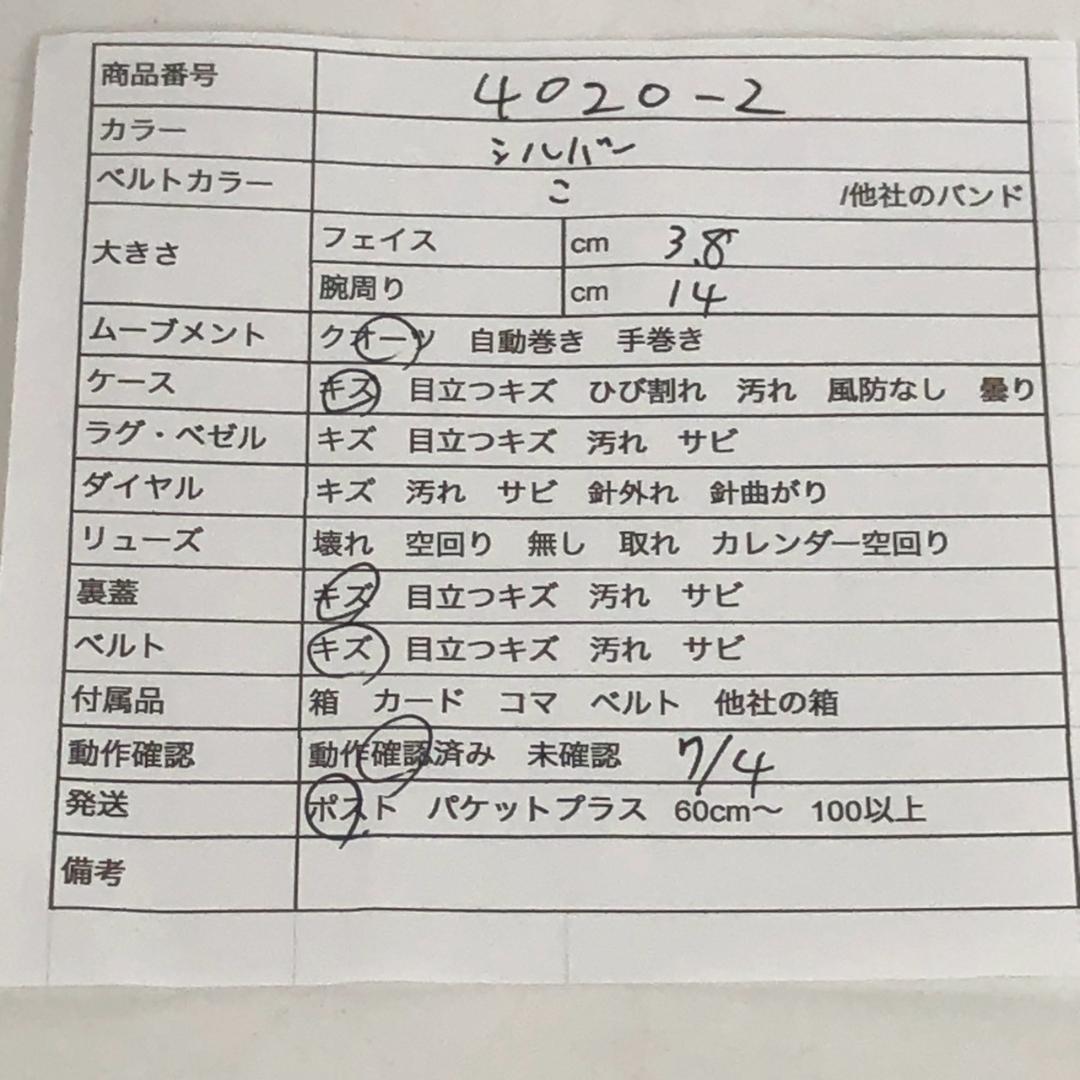 商品番号 4020-2
カラー シルバー
ベルトカラー こ /他社のバンド
大きさ フェイス cm 3.8
腕周り cm 14
ムーブメント クオーツ 自動巻き 手巻き
ケース キズ 目立つキズ ひび割れ 汚れ 風防なし 曇り
ラグ・ベゼル キズ 目立つキズ 汚れ サビ
ダイヤル キズ 汚れ サビ 針外れ 針曲がり
リューズ 壊れ 空回り 無し 取れ カレンダー空回り
裏蓋 キズ 目立つキズ 汚れ サビ
ベルト キズ 目立つキズ 汚れ サビ
付属品 箱 カード コマ ベルト 他社の箱
動作確認 動作確認済み 未確認 7/4
発送 ポスト パケットプラス 60cm～ 100以上
備考